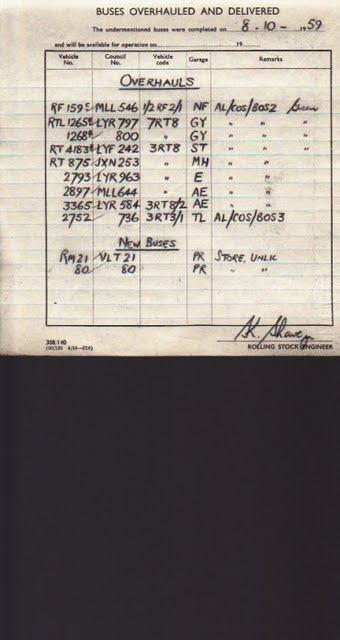 BUSES OVERHAULED AND DELIVERED
The undermentioned buses were completed on 8-10- 1959
and will be available for operation on 19
Vehicle No. Council No. Vehicle code Garage Remarks
OVERHAULS
RF 595 MLL 546 1/2RF2/1 NF AL/COS/BOS2
RTL 1265 LYR 797 7RT8 GY " "
1268 800 " GY " "
RT 4183 LYF 242 3RT8 ST " "
RT 875 JXN 253 " MH " "
2793 LYR 963 " E " "
2897 MLL 644 " AE " "
3365 LYR 584 3RT8/2 AE " "
2752 736 3RT3/1 TL AL/COS/BOS3
NEW BUSES
RM 21 VLT 21 PR STORE, UNLIC
80 80 PR " "
ROLLING STOCK ENGINEER